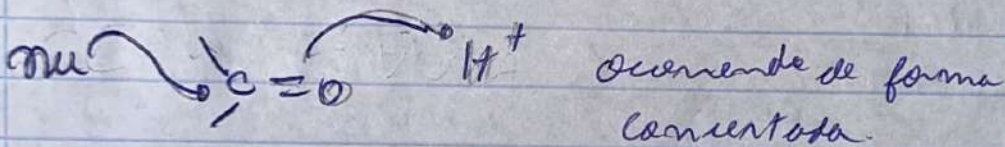 nu C = O H⁺ ocorrendo de forma
concertada.